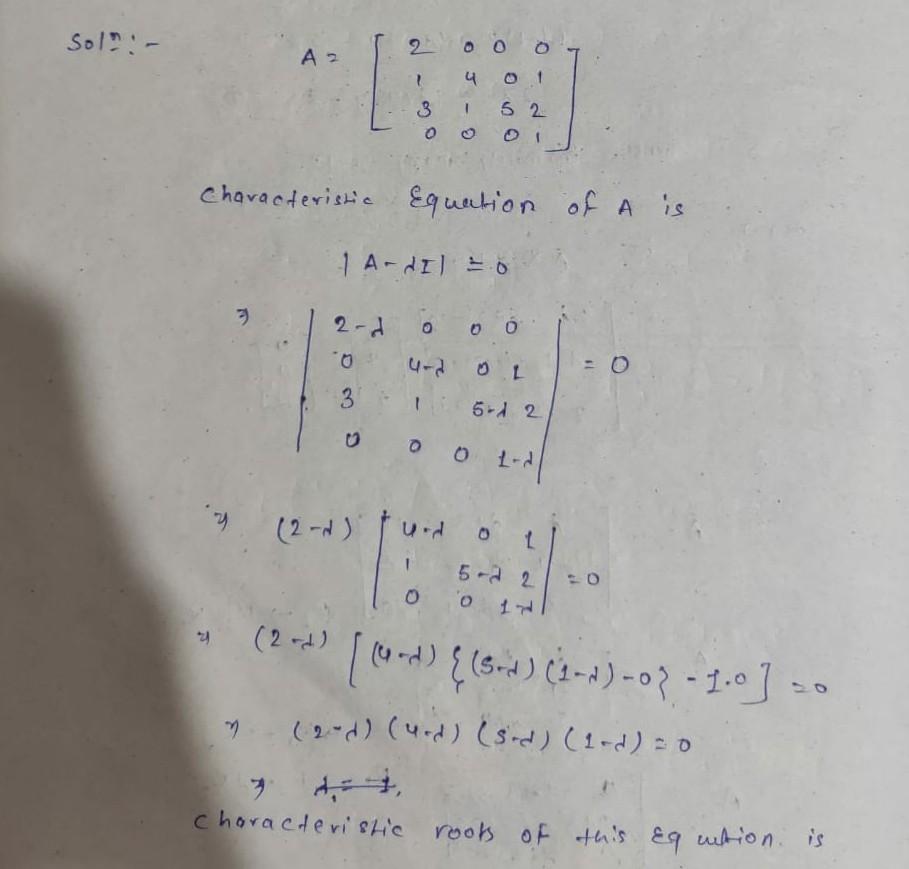 Solⁿ:-
A = [ 2 0 0 0
1 4 0 1
3 1 5 2
0 0 0 1 ]
Characteristic Equation of A is
| A-λI | = 0
⇒ | 2-λ 0 0 0
0 4-λ 0 1 = 0
3 1 5-λ 2
0 0 0 1-λ |
⇒ (2-λ) | 4-λ 0 1
1 5-λ 2 = 0
0 0 1-λ |
⇒ (2-λ) [ (4-λ) { (5-λ) (1-λ) -0} - 1.0 ] = 0
⇒ (2-λ) (4-λ) (5-λ) (1-λ) = 0
⇒ λ = -1,
Characteristic roots of this Equation is